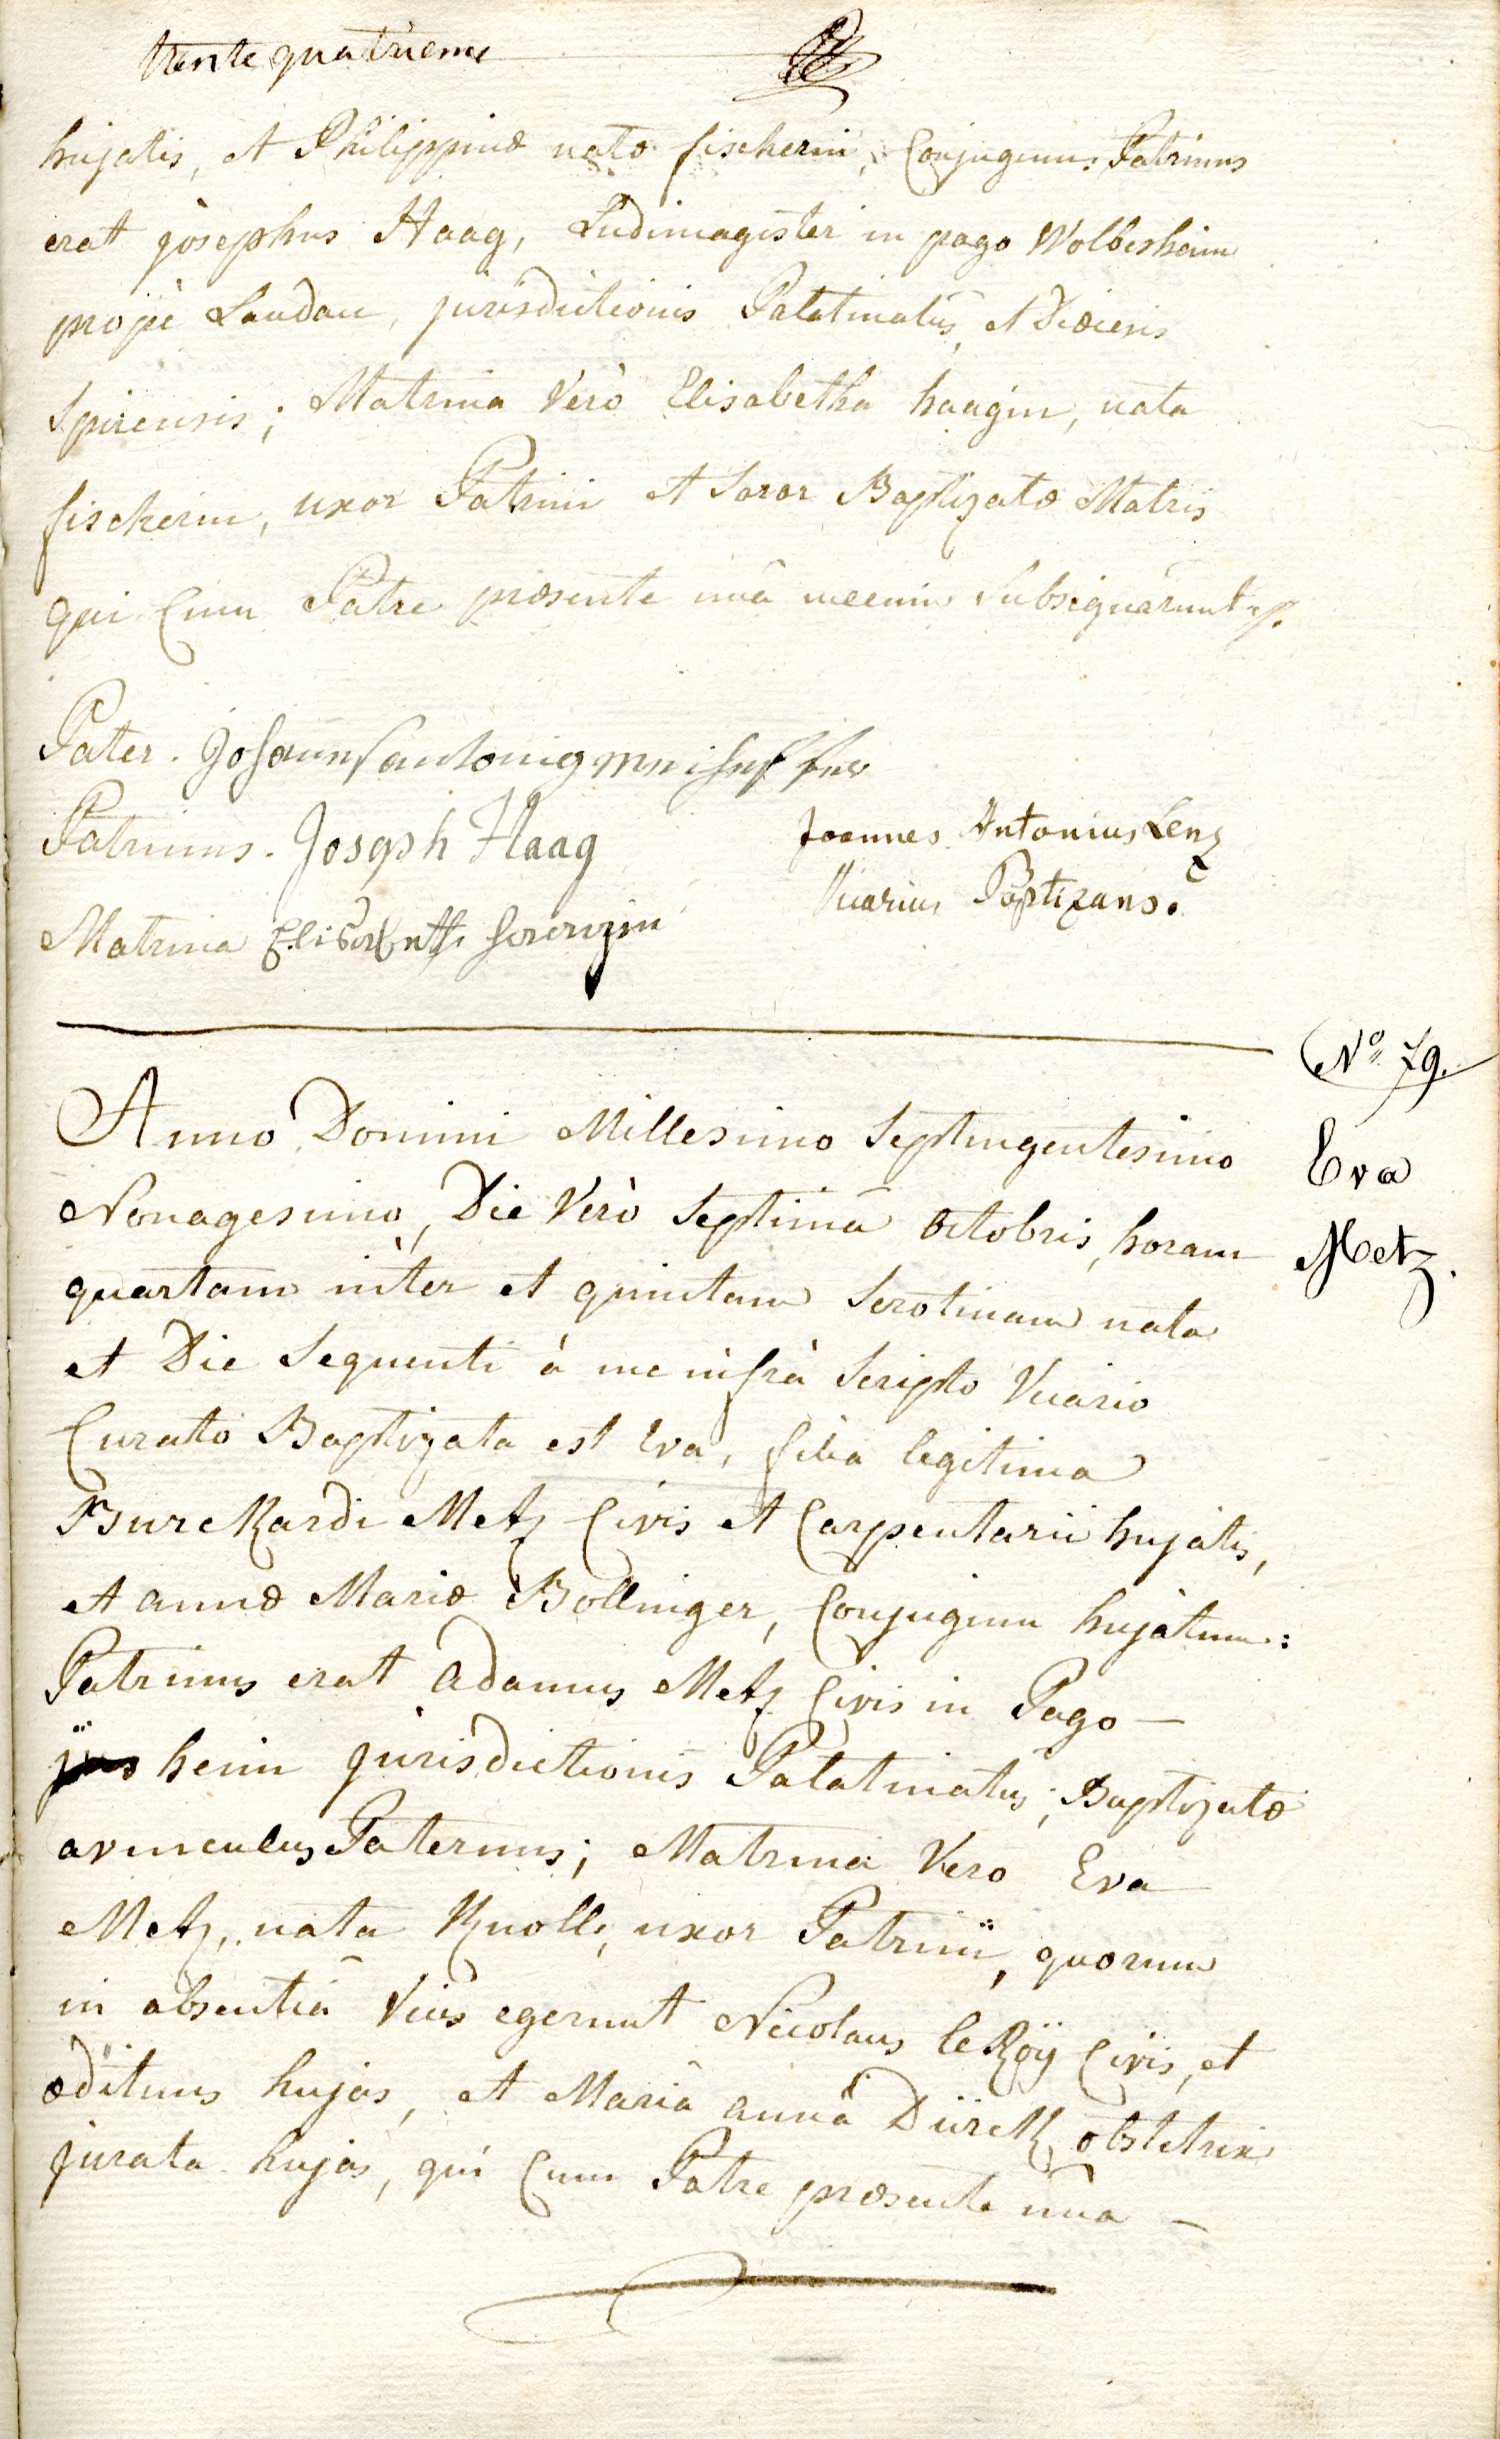 trente quatrieme
hujatis, et Philippinæ natæ fischerin, Conjugum: Patrinus
erat josephus Haag, Ludimagister in pago Wolbesheim
propè Landau, jurisdictionis Palatinatûs, et Diœcesis
Spirensis; Matrina Verò Elisabetha haagin, nata
fischerin, uxor Patrini et Soror Baptizatæ Matris
qui Cum Patre præsente unâ mecum Subsignârunt
Pater. Johann
Patrinus. Joseph Haag
Joannes Antonius Lenz
Vicarius Baptizans.
Matrina
No. 79.
Eva
Metz.
Anno Domini Millesimo Septingentesimo
Nonagesimo, Die Verò Septimâ octobris, horam
quartam inter et quintam Serotinam nata
et Die Sequenti à me infrà Scripto Vicario
Curato Baptizata est Eva, filia legitima
Burckardi Metz Civis et Carpentarii hujatis,
et annæ Mariæ Bollinger, Conjugum hujatum:
Patrinus erat adamus Metz Civis in Pago —
heim jurisdictionis Palatinatûs; Baptizatæ
avunculus Paternus; Matrina Vero Eva
Metz, nata Knoll, uxor Patrini, quorum
in absentiâ Vices egerunt Nicolaus le Roÿ Civis, et
ædituus hujas, et Maria anna Dürck obstetrix
jurata hujas, qui Cum Patre præsente unà —